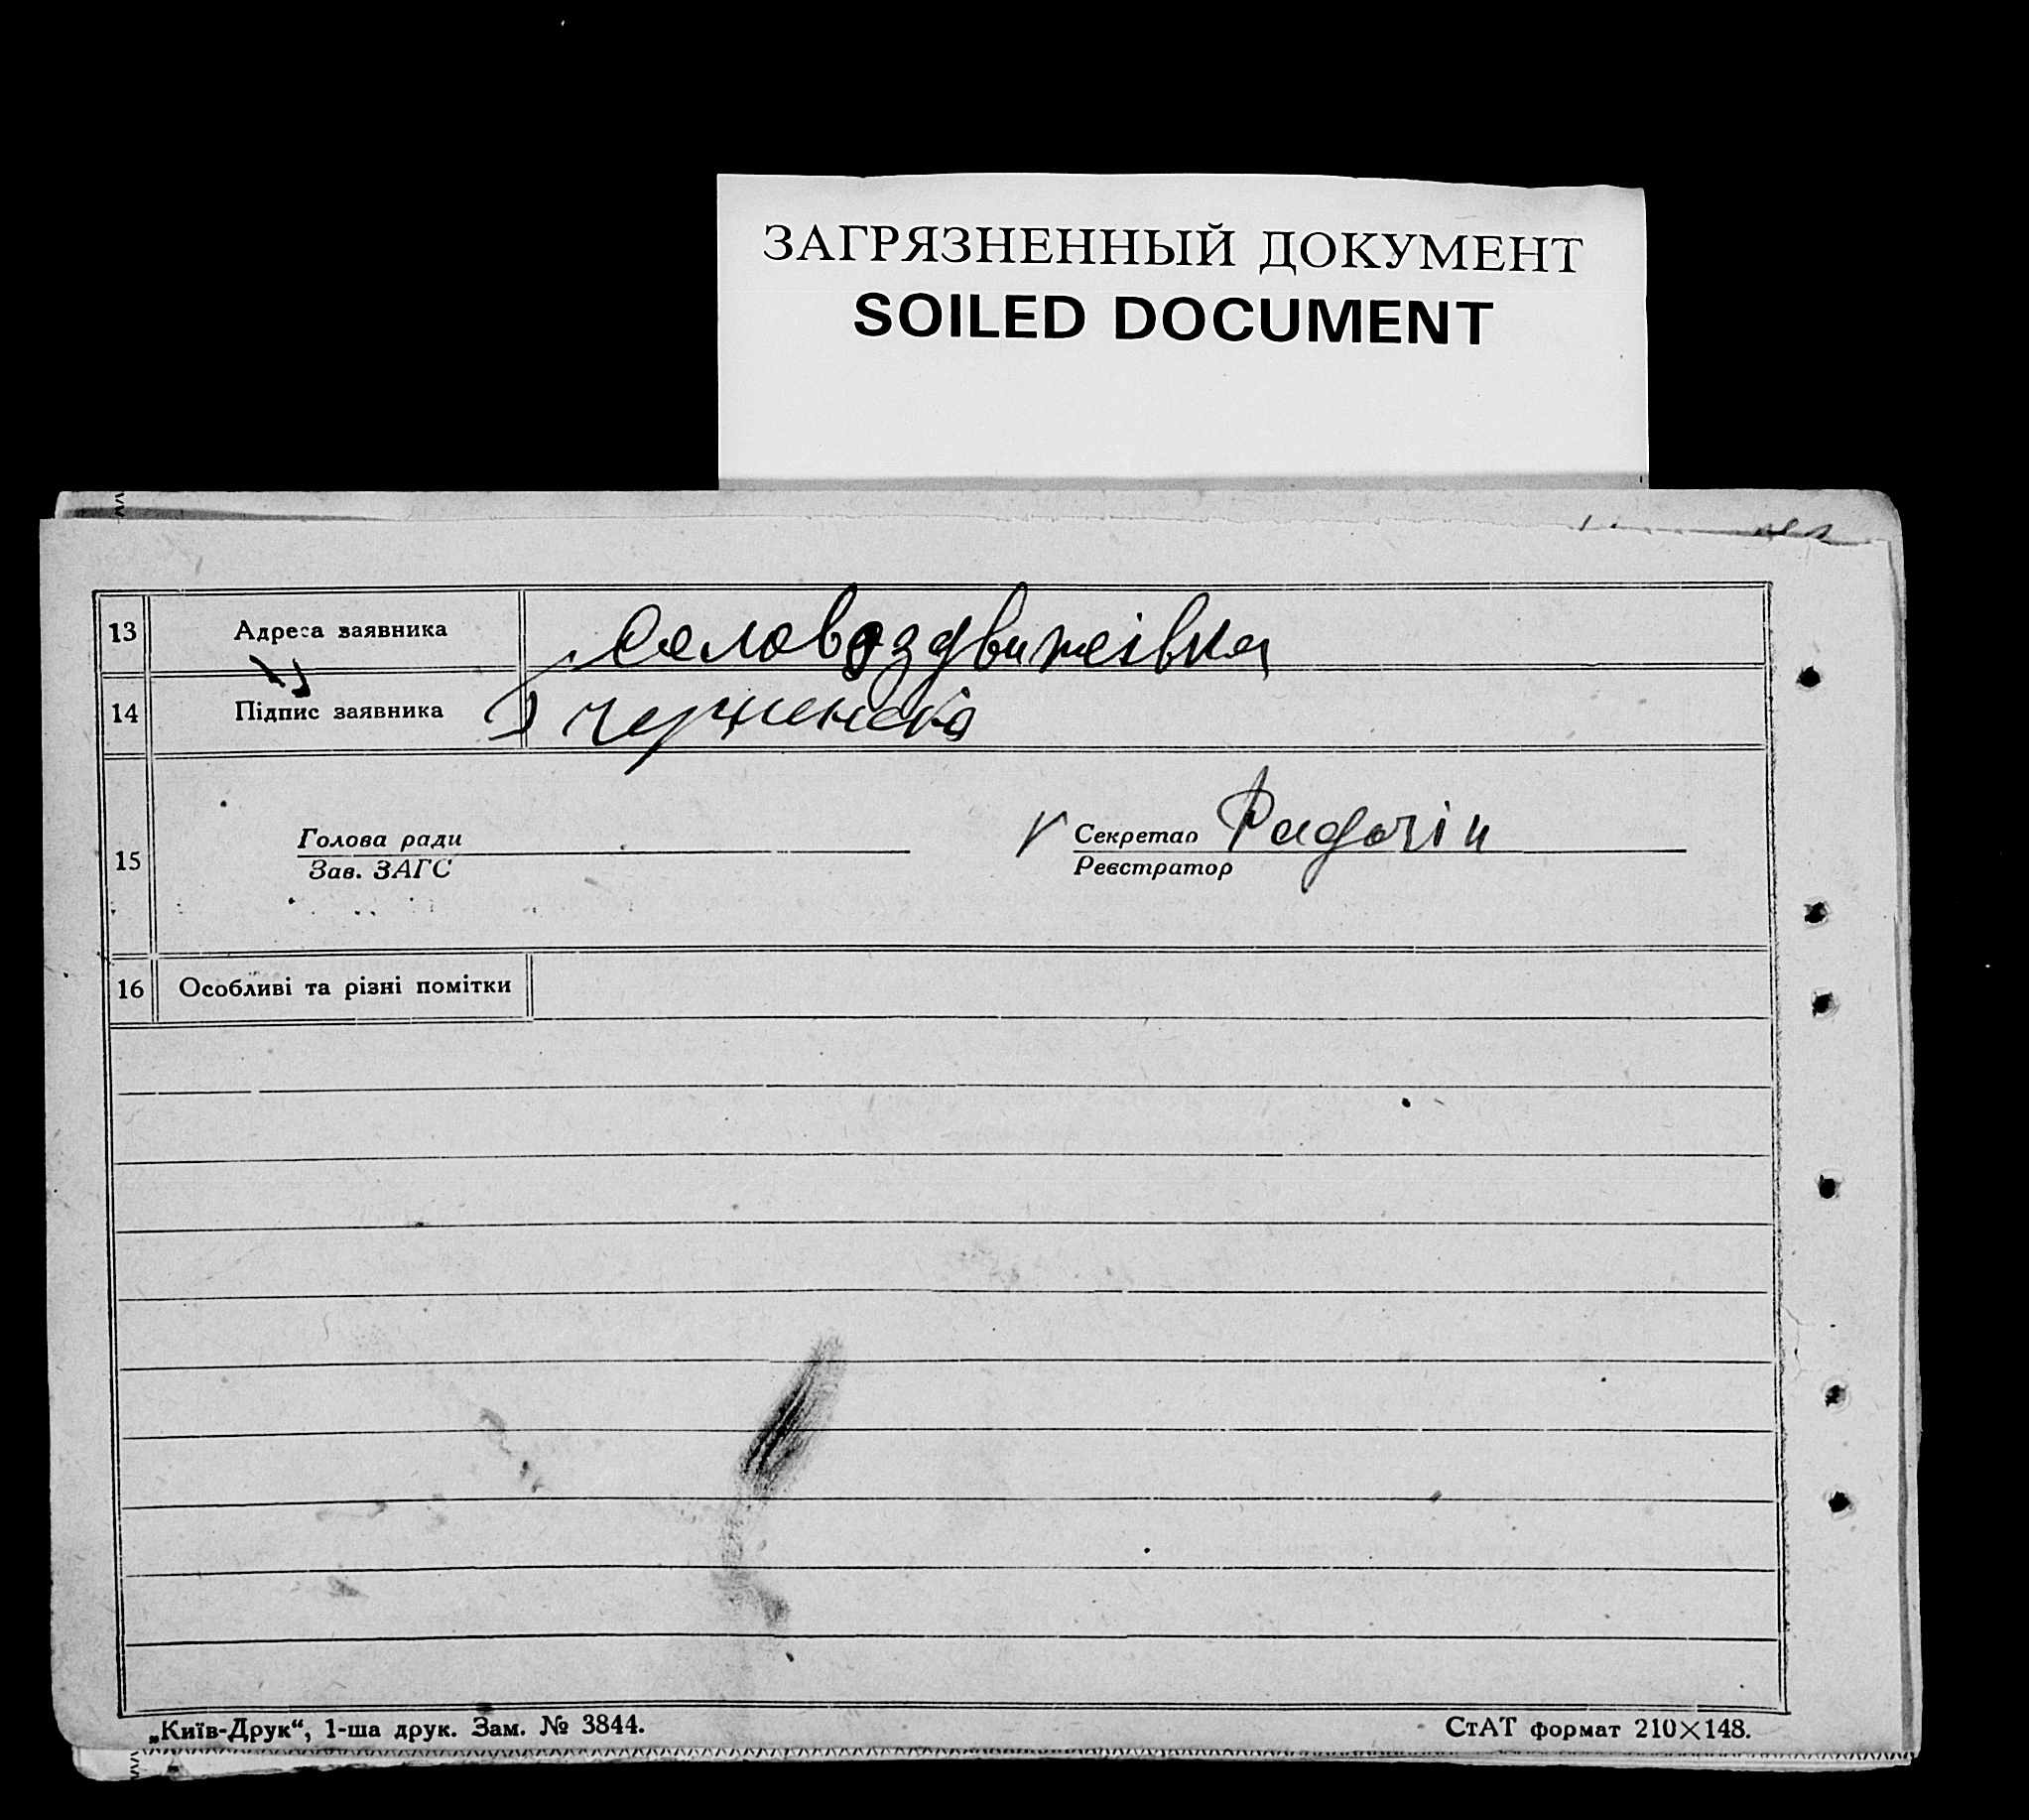 ЗАГРЯЗНЕННЫЙ ДОКУМЕНТ
SOILED DOCUMENT
13 Адреса заявника Село Воздвижівка
14 Підпис заявника
15 Голова ради
Зав. ЗАГС
Секретар
Реєстратор
16 Особливі та різні помітки
„Київ-Друк“, 1-ша друк. Зам. № 3844.
СтАТ формат 210×148.